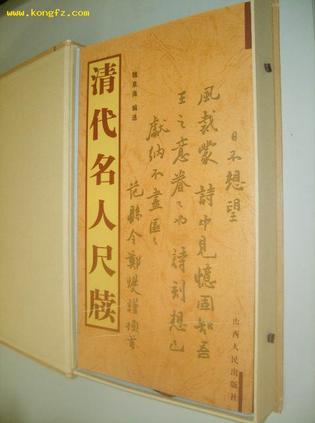 www.kongfz.com
清代名人尺牍
编选
日不想望
风裁蒙诗中见忆固知吾
王之意眷
诗刻想已
献纳不尽区
范县令郑燮
顿首
山西人民出版社